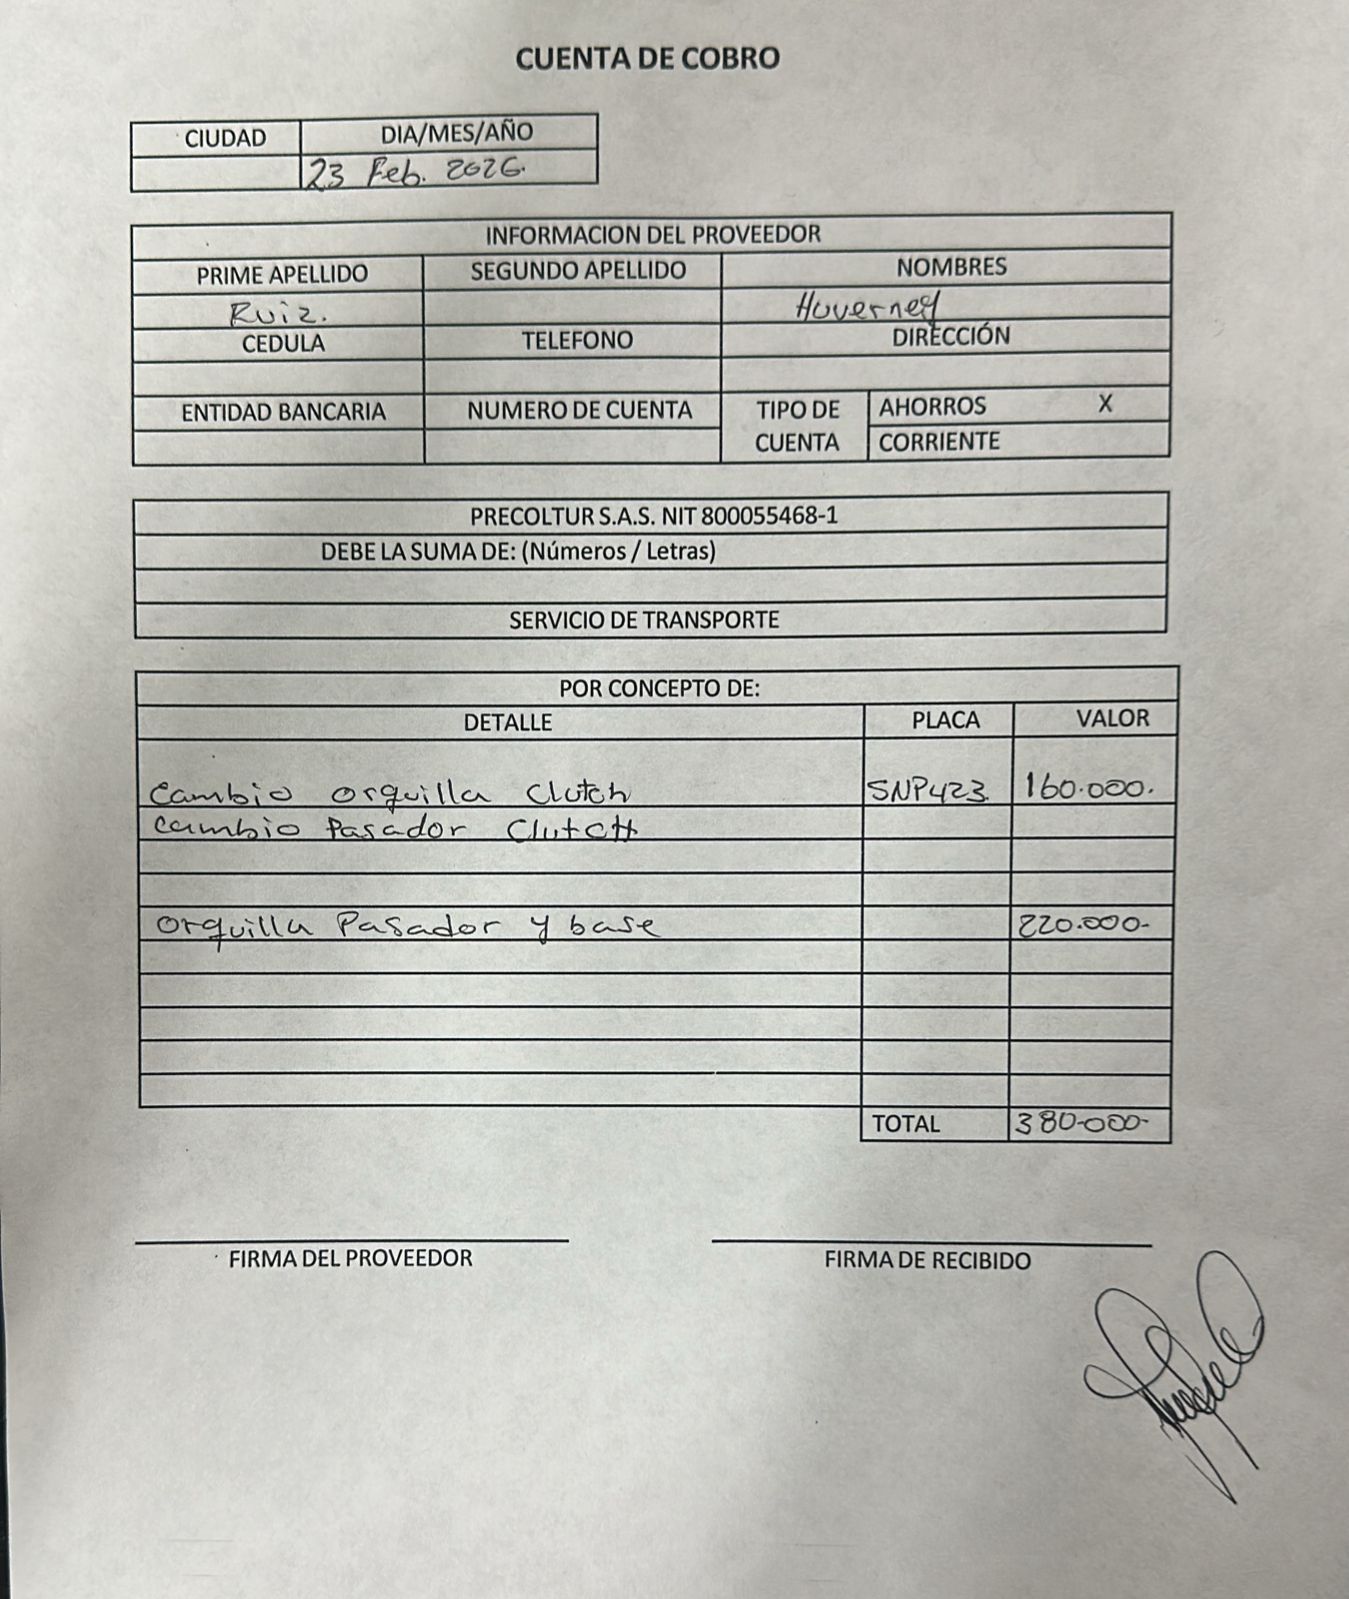 CUENTA DE COBRO
CIUDAD DIA/MES/AÑO
23 Feb. 2026.
INFORMACION DEL PROVEEDOR
PRIME APELLIDO SEGUNDO APELLIDO NOMBRES
Ruiz. Huverney
CEDULA TELEFONO DIRECCIÓN
ENTIDAD BANCARIA NUMERO DE CUENTA TIPO DE CUENTA AHORROS X
CORRIENTE
PRECOLTUR S.A.S. NIT 800055468-1
DEBE LA SUMA DE: (Números / Letras)
SERVICIO DE TRANSPORTE
POR CONCEPTO DE:
DETALLE PLACA VALOR
Cambio orquilla Clutch SNP423 160.000.
cambio Pasador Clutch
orquilla Pasador y base 220.000-
TOTAL 380.000-
FIRMA DEL PROVEEDOR FIRMA DE RECIBIDO